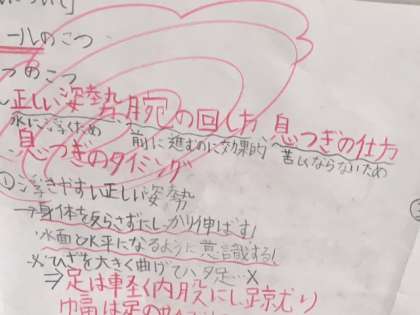 ついて]
ールのこつ
つのこつ
正しい姿勢、腕の回し方 息つぎの仕方
水に浮くため 前に進むのに効果的 苦しくならないため
息つぎのタイミング
①浮きやすい正しい姿勢
→身体を反らさずにしっかり伸ばす!
・水面と水平になるように意識する!
・×ひざを大きく曲げてバタ足…×
⇒足は軽く内股にし
幅は足の